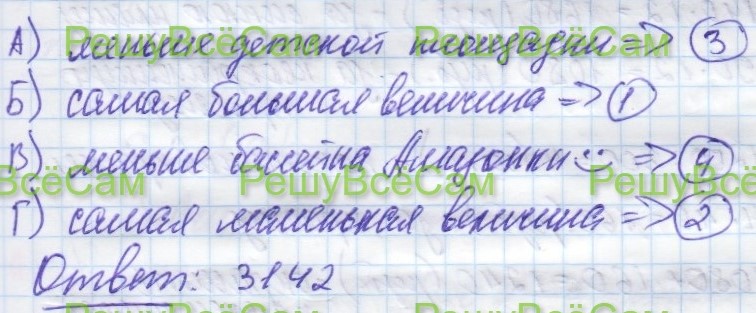 А) меньше детской площадки => 3
Б) самая большая величина => 1
В) меньше бассейна Амазонки :) => 4
Г) самая маленькая величина => 2
Ответ: 3142
РешуВсёСам РешуВсёСам
РешуВсёСам РешуВсёСам
ВсёСам РешуВсёСам РешуВсё
РешуВсёСам РешуВсёСам
ВсёСам РешуВсёСам